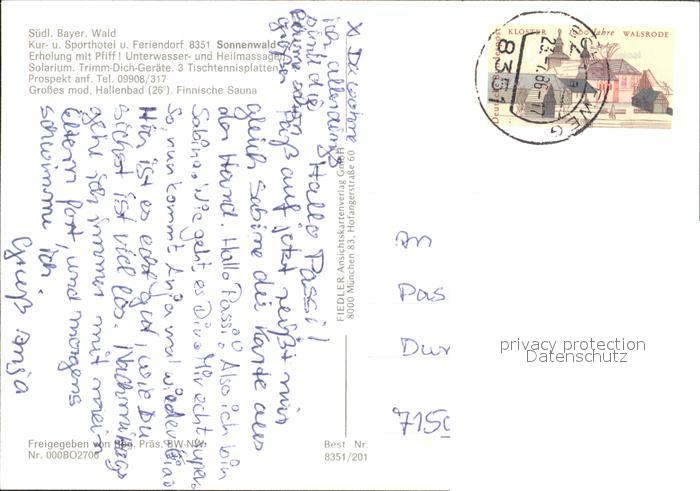 Südl. Bayer. Wald
Kur- u. Sporthotel u. Feriendorf 8351 Sonnenwald
Erholung mit Pfiff! Unterwasser- und Heilmassagen
Solarium. Trimm-Dich-Geräte. 3 Tischtennisplatten
Prospekt anf. Tel. 09908/317
Großes mod. Hallenbad (26°). Finnische Sauna
Deutsche Bundespost
KLOSTER 1000 Jahre WALSRODE
8351
23.7.86-17
X Da wohne
ich allerdings
Hallo Passi!
Paß auf jetzt reißt mir
gleich Sabine die Karte aus
der Hand. Hallo Passi. Also ich bin
Sabine. Wie geht es Dir? Mir echt super.
So, nun kommt Anja mal wieder. Ciao
Hier ist es echt gut, wie Du
siehst ist viel los. Nachmittags
geh ich immer mit mein
Eltern fort, und morgens
schwimme ich.
Gruß Anja
FIEDLER Ansichtskartenverlag GmbH
8000 München 83, Hofangerstraße 60
An
Pas
Dur
7150
privacy protection
Datenschutz
Freigegeben von Reg. Präs. BW-NW
Nr. 000BO2706
Best Nr.
8351/201